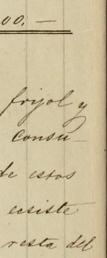 00. —
frijol y
consu-
de estos
ecsiste
resta del